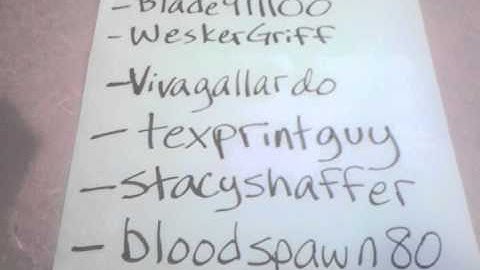 -WeskerGriff
-Vivagallardo
-texprintguy
-stacyshaffer
-bloodspawn80